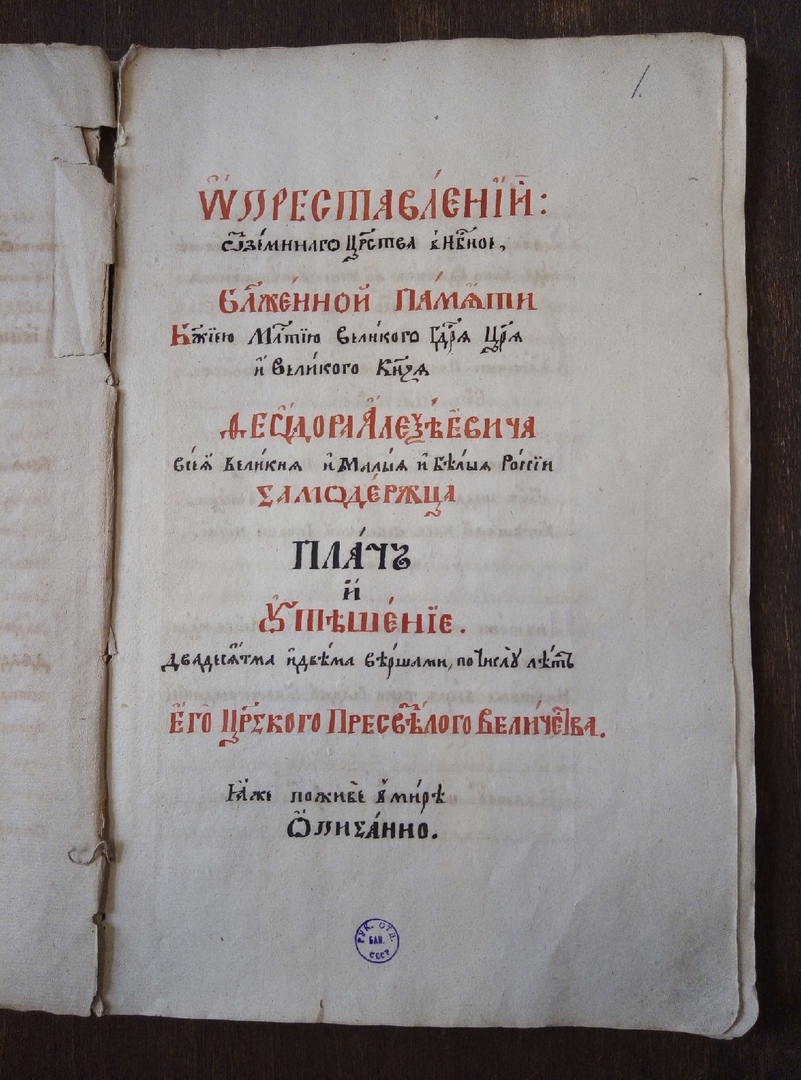 1.
Ѡ҆ПРЕСТАВЛЕ́НЇЙ:
ѿзе́мнаго црⷭ҇тва в̾нб҃ное,
БЛ҃ЖЕ́ННОЙ ПА́МѦТИ
Бж҃їею млⷭ҇тїю вели́кого гдⷭ҇рѧ цр҃ѧ
и҆ вели́кого кн҃зѧ
ѲЕѠ́ДОРА А҆ЛЕѮѢ́ЕВИЧА
всеѧ̀ вели́кїѧ и҆ ма́лыѧ и҆ бѣ́лыѧ рѡссі́и
САМОДЕ́РЖЦА
ПЛА́ЧЪ
и҆
ОУ҆ТѢШЕ́НЇЕ.
двадесѧтма̀ и҆двѣма̀ вѣ́ршами, по числꙋ̀ лѣ́тъ
Е҆ГѠ̀ ЦРⷭ҇КОГО ПРЕСВѢ́ТЛОГО ВЕЛИ́ЧЕСТВА.
Ꙗ҆́же поживѐ в̾ми́рѣ
Ѡ҆ПИСА́ННО.
РУК. ОТД.
БАН.
СССР